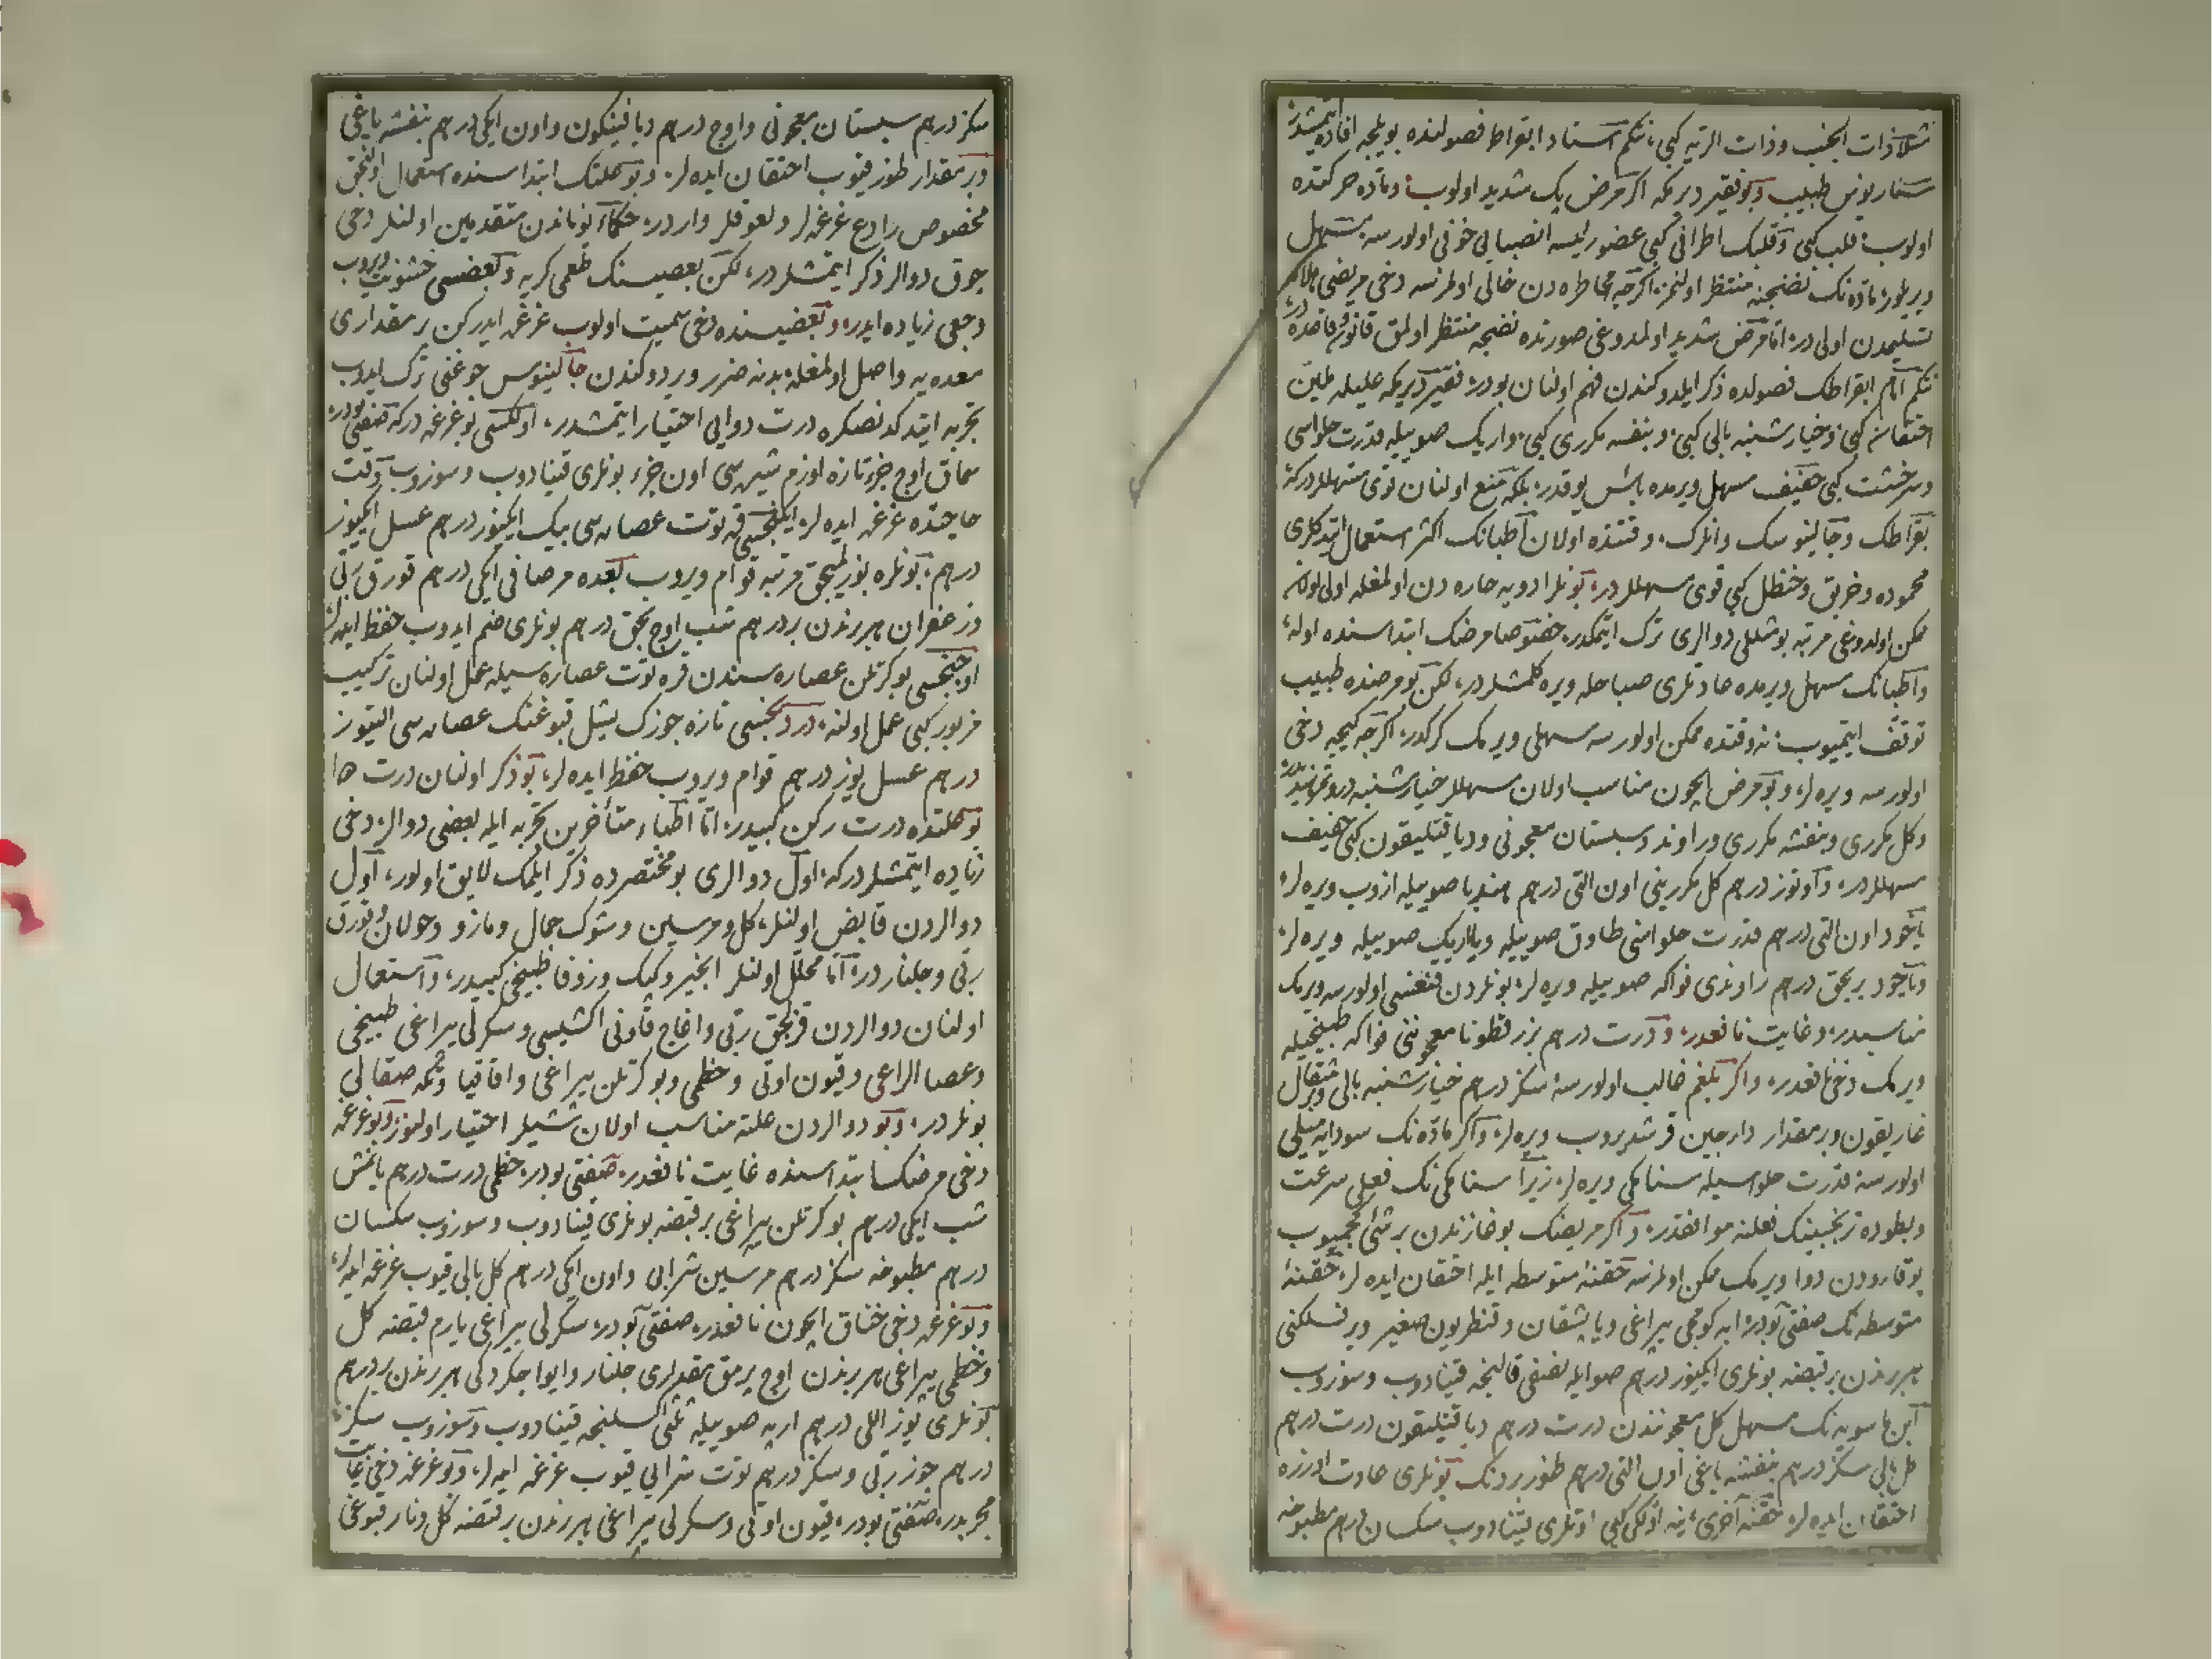 مثلا ذات الجنب وذات الريه كبى، نتكم استاد ابقراط فصولنده بويلجه افاده ايتمشدر
سناريوس طبيب وبو فقير ديركه اكر مرض پك شديد اولوب وماده حركتده
اولوب قلب كبى وقلبك اطرافى كبى عضو رئيسه انصبابى خوفى اولورسه مسهل
ويريلور ماده نك نضجنه منتظر اولنمز اكرچه مخاطره دن خالى اولمزسه دخى مريضى هلاكه
تسليمدن اولى در، اما مرض شديد اولمدوغى صورتده نضجه منتظر اولمق قانون وقاعده در
نتكم امام ابقراطك فصولده ذكر ايلدوكندن فهم اولنان بودر، فقير ديركه عليله ملين
احتقانه كبى وخيارشنبه بالى كبى وبنفشه مكررى كبى واريك صوييله قدرت حلواسى
وشيرخشت كبى خفيف مسهل ويرمده بأس يوقدر، بلكه منع اولنان قوى مسهللردركه
بقراطك وجالينوسك وانلرك وقتنده اولان اطبانك اكثر استعمال ايتدكلرى
محموده وخربق وحنظل كبى قوى مسهللردر، بونلر ادويه حاره دن اولمغله اولى اولان
ممكن اولدوغى مرتبه بو شكللى دوالرى ترك ايتمكدر، خصوصا مرضك ابتداسنده اوله
واطبانك مسهل ويرمده عادتلرى صباحله ويره كلمشلردر، لكن بو مرضده طبيب
توقف ايتميوب نه وقتده ممكن اولورسه مسهلى ويرمك كركدر، اكرچه كيجه دخى
اولورسه ويره لر، وبو مرض ايچون مناسب اولان مسهللر خيارشنبه در وتمرهنديدر
وكل مكررى وبنفشه مكررى وراوند وسبستان معجونى ودياقتليقون كبى خفيف
مسهللردر، واوتوز درهم كل مكررينى اون التى درهم هندبا صوييله ازوب ويره لر
ياخود اون التى درهم قدرت حلواسنى طاوق صوييله ويا اريك صوييله ويره لر
وياخود بر بچق درهم راوندى فواكه صوييله ويره لر، بونلردن قنغيسى اولورسه ويرمك
مناسبدر، وغايت نافعدر، ودرت درهم بزر قطونا معجوننى فواكه طبيخيله
ويرمك دخى نافعدر، واكر بلغم غالب اولورسه سكز درهم خيارشنبه بالى وبر مثقال
غاريقون وبر مقدار دارچين قرشدروب ويره لر، واكر ماده نك سودايه ميلى
اولورسه قدرت حلواسيله سنامكى ويره لر، زيرا سنامكى نك فعلى سرعت
وبطوده ترنجبينك فعلنه موافقدر، واكر مريضك بوغازندن بر شئ كچميوب
يوقارودن دوا ويرمك ممكن اولمزسه حقنه متوسطه ايله احتقان ايده لر، حقنه
متوسطه نك صفتى بودر ابه كوجى يپراغى وياپشقان وقنطريون صغير وير فسلكنى
هر برندن بر قبضه بونلرى ايكيوز درهم صو ايله نصفى قالنجه قينادوب وسوزوب
ابن ماسويه نك مسهل كل معجونندن درت درهم دياقتليقون درت درهم
كل بالى سكز درهم بنفشه ياغى اون التى درهم طوز بر دنك بونلرى عادت اوزره
احتقان ايده لر، حقنه اخرى، ينه اولكى كبى اوتلرى قينادوب سكسان درهم مطبوخه
سكز درهم سبستان معجونى واوج درهم ديافينكون واون ايكى درهم بنفشه ياغى
وبر مقدار طوز قيوب احتقان ايده لر، وبو علتك ابتداسنده استعمال اولنجق
مخصوص رادع غرغره لر ولعوقلر واردر، حكماء يوناندن متقدمين اولنلر دخى
چوق دوالر ذكر ايتمشلردر، لكن بعضيسنك طعمى كريه وبعضيسى خشونت ويروب
وجعى زياده ايدر، وبعضيسنده دخى سميت اولوب غرغره ايدركن بر مقدارى
معده يه واصل اولمغله بدنه ضرر ويردوكندن جالينوس چوغنى ترك ايدوب
تجربه ايتدكدنصكره درت دوايى اختيار ايتمشدر، اولكيسى بو غرغره دركه صفتى بودر
سماق اوج جزء تازه اوزم شيره سى اون جزء بونلرى قينادوب وسوزوب وقت
حاجتده غرغره ايده لر، ايكنجيسى قره توت عصاره سى بيك ايكيوز درهم عسل ايكيوز
درهم، بونلره يوريلجق مرتبه قوام ويروب بعده مر صافى ايكى درهم قورق ربى
وزعفران هر برندن بر درهم شب اوج بچق درهم بونلرى ضم ايدوب حفظ ايده لر
اوچنجيسى بوكرتلن عصاره سندن قره توت عصاره سيله عمل اولنان تركيب
مزبور كبى عمل اولنه، دردنجيسى تازه جوزك يشيل قبوغنك عصاره سى التيوز
درهم عسل يوز درهم قوام ويروب حفظ ايده لر، بو ذكر اولنان درت دوا
بو علتده درت ركن كبيدر، اما اطباء متأخرين تجربه ايله بعضى دوالر دخى
زياده ايتمشلردركه، اول دوالرى بو مختصرده ذكر ايلمك لايق اولور، اول
دوالردن قابض اولنلر، كل ومرسين وشوك جمال ومازو وحولان وقورق
ربى وجلناردر، اما محلل اولنلر انجير وكبك وزوفا طبيخى كبيدر، واستعمال
اولنان دوالردن قزلجق ربى واغاج قاونى اكشيسى وسكرلى يپراغى طبيخى
وعصا الراعى وقيون اوتى وخطمى وبوكرتلن يپراغى واقاقيا وتكه صقالى
بونلردر، وبو دوالردن علته مناسب اولان شيلر اختيار اولنور، وبو غرغره
دخى مرضك ابتداسنده غايت نافعدر، صفتى بودر، خطمى درت درهم يانمش
شب ايكى درهم بوكرتلن يپراغى بر قبضه بونلرى قينادوب وسوزوب سكسان
درهم مطبوخه سكز درهم مرسين شرابى واون ايكى درهم كل بالى قيوب غرغره ايده لر
وبو غرغره دخى خناق ايچون نافعدر، صفتى بودر، سكرلى يپراغى يارم قبضه كل
وخطمى يپراغى هر برندن اوج پرمق مقدارى جلنار وايوا چكردكى هر برندن بر درهم
بونلرى يوز اللى درهم ارپه صوييله ثلثى اكسلنجه قينادوب وسوزوب سكز
درهم جوز ربى وسكز درهم توت شرابى قيوب غرغره ايده لر، وبو غرغره دخى غايت
مجربدر، صفتى بودر، قيون اوتى وسكرلى يپراغى هر برندن بر قبضه كل ونار قبوغى